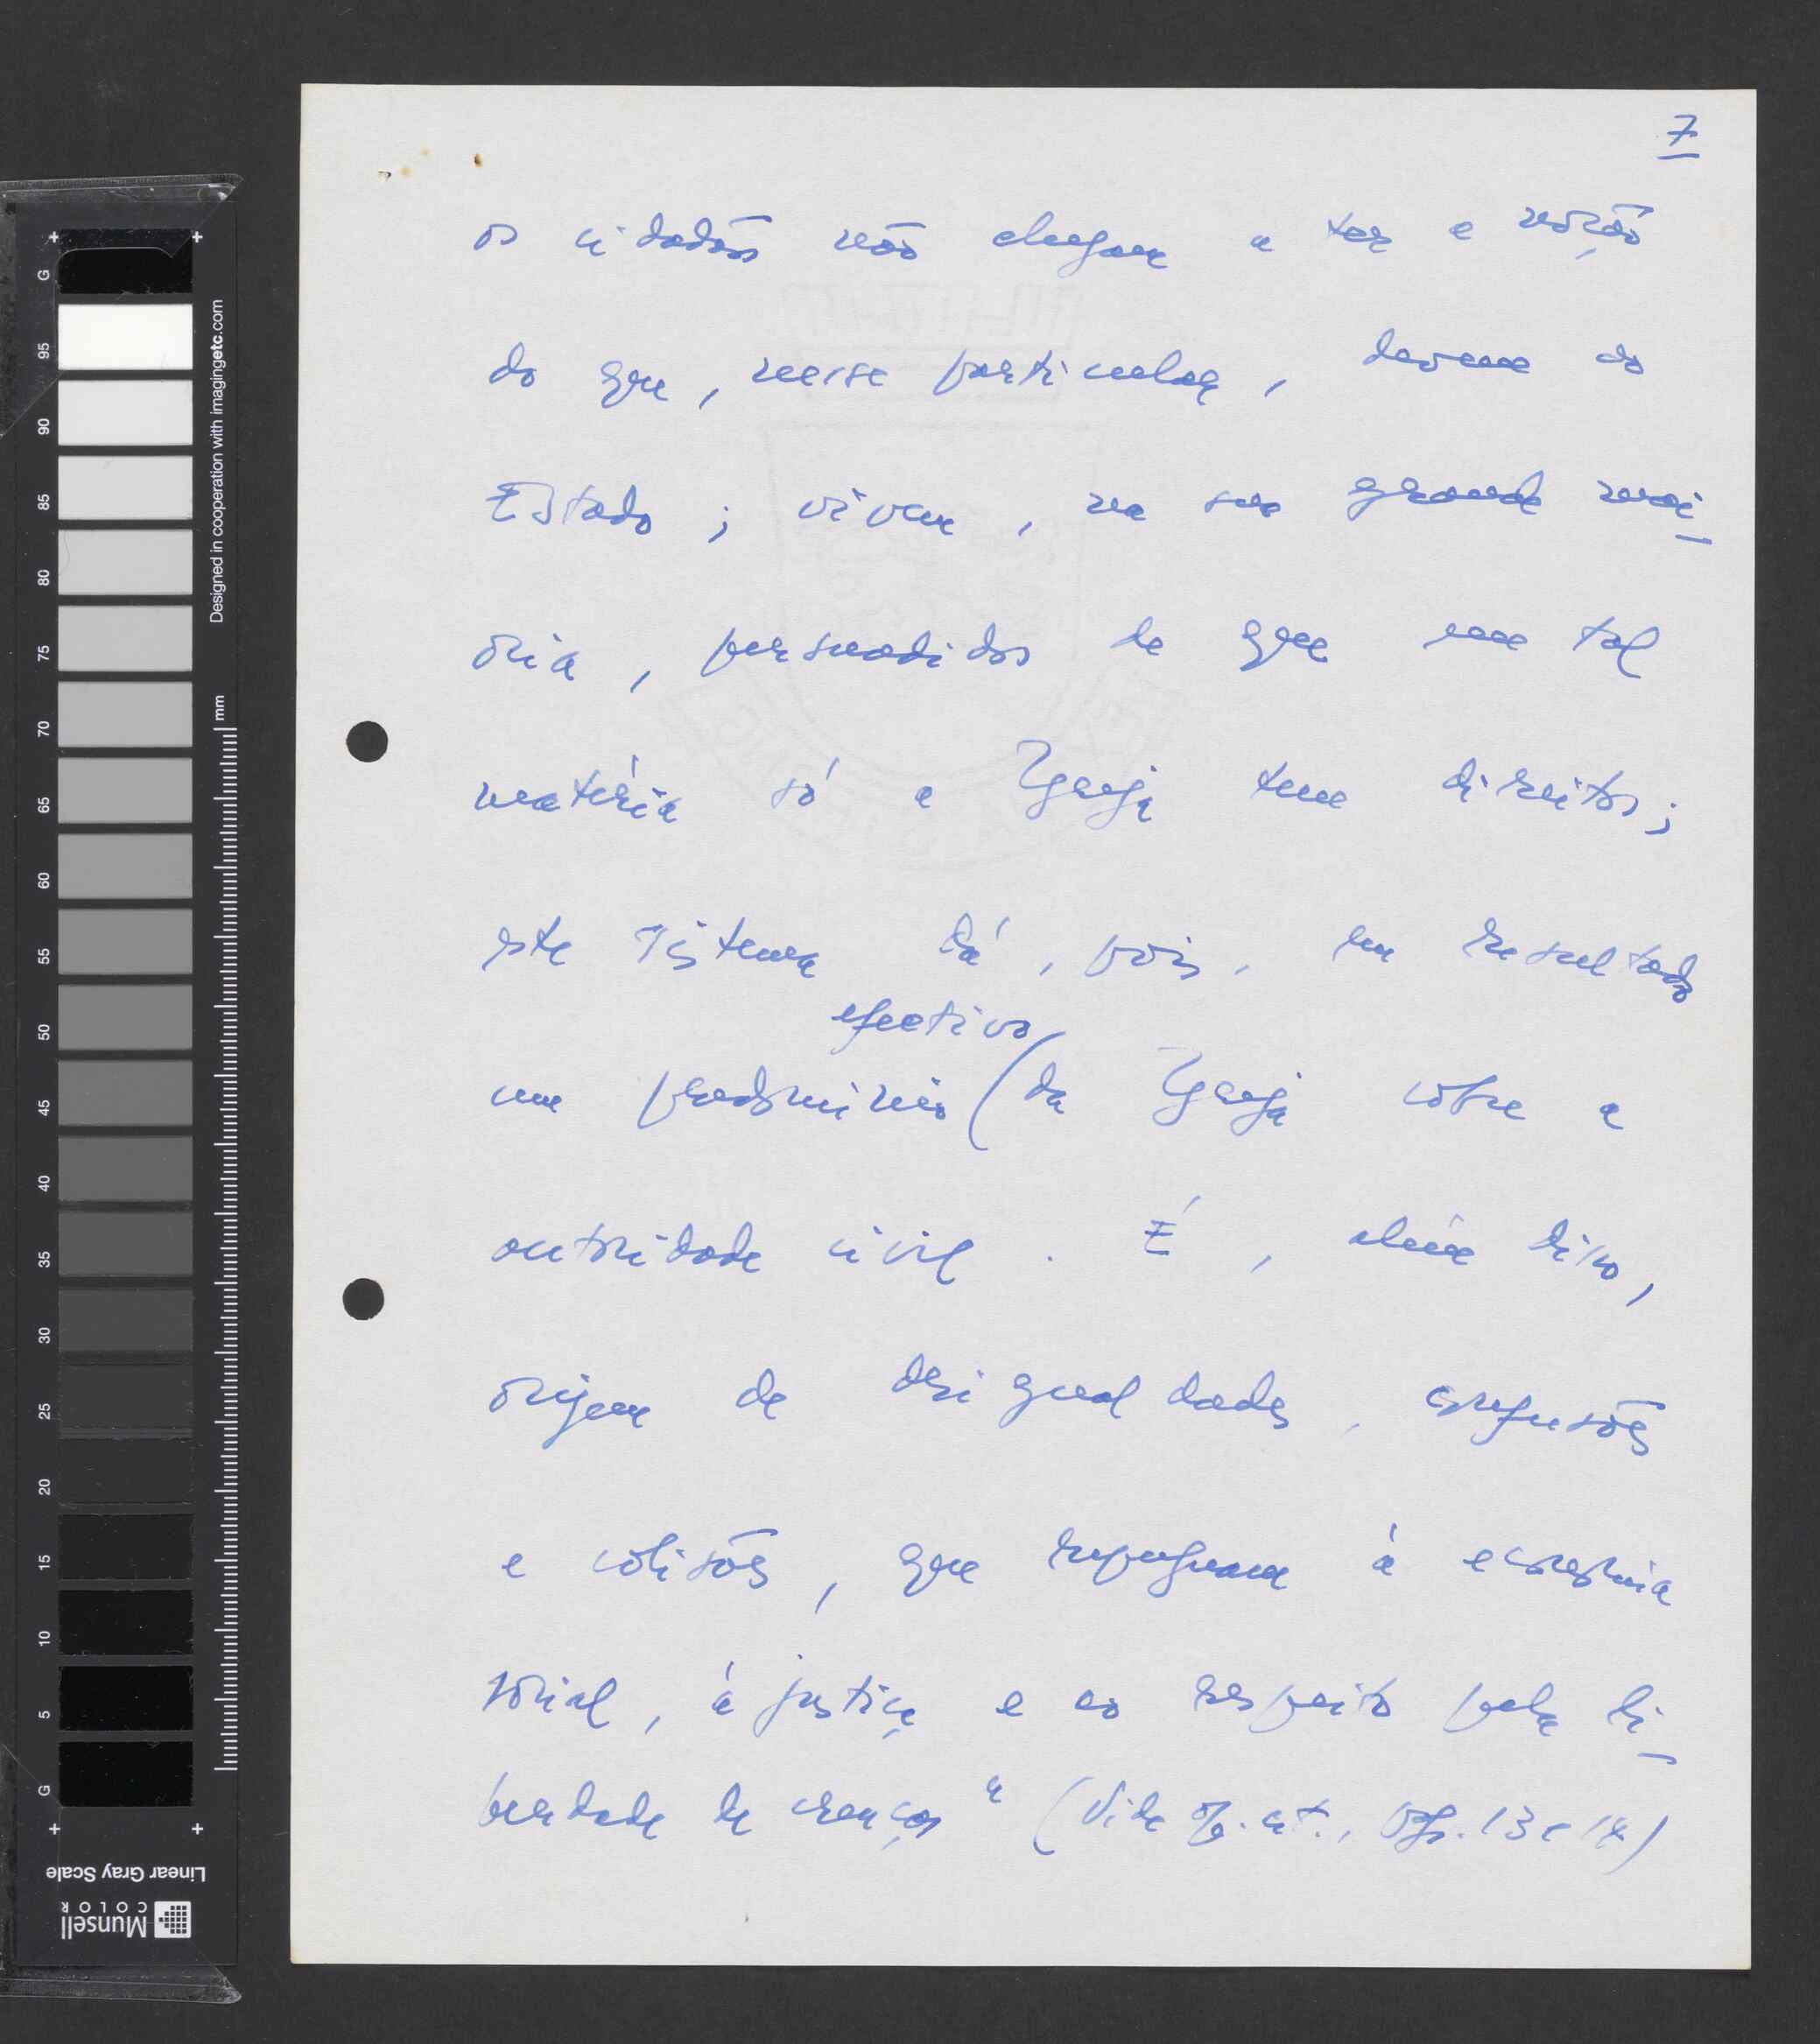 7
os cidadãos não chegam a ter a noção
do que, nesse particular, devem ao
Estado; vivem, na sua grande mai-
oria, persuadidos de que em tal
matéria só a Igreja tem direitos;
este sistema dá, pois, em resultado
efectivo
um predomínio (da Igreja sobre a
autoridade civil. É, além disso,
origem de desigualdades, confusões
e colisões, que repugnam à economia
social, à justiça e ao respeito pela li-
berdade de crenças" (Vide op. cit., pgs. 13 e 14)
G
95
90
85
80
75
70
65
60
55
50
45
40
35
30
25
20
15
10
5
G
mm
Designed in cooperation with imagingetc.com
Linear Gray Scale
Munsell
COLOR